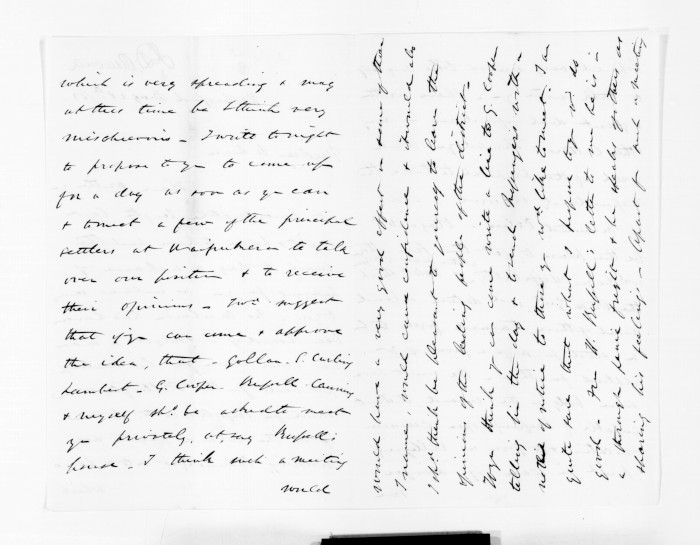 which is very spreading & may
at this time be I think very
mischievous - I write tonight
to propose to you to come up
for a day as soon as you can
& to meet a few of the principal
settlers at Waipukurau to talk
over our position & to receive
their opinions - I wd. suggest
that if you can come & approve
the idea, that - Gollan. S. Curling
Lambert - G. Cooper. Russell. Canning
& myself shd. be asked to meet
you privately, at, say Russell's
house. I think such a meeting
would
would have a very good effect on some of those
I name, would cause confidence & should also
I shd. think be pleasant to yourself to learn the
opinions of the leading people of the district -
If you think you can come write a line to G. Cooper
telling him the day & send Messengers with a
note of notice to those you wd. like to meet. I am
quite sure that what I propose to you wd. do
good - From H. Russell's letter to me he is in
a thorough panic & he speaks of others as
sharing his feelings - Apart from such a meeting